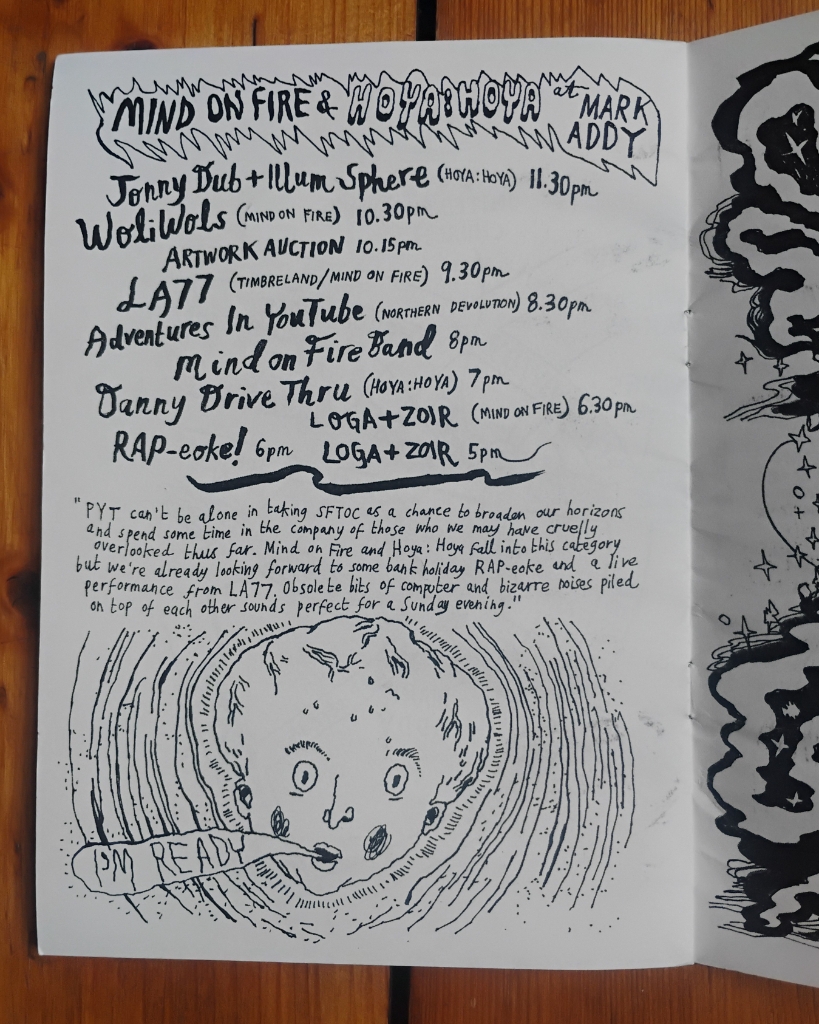 MIND ON FIRE & HOYA:HOYA at MARK ADDY
Jonny Dub + Illum Sphere (HOYA:HOYA) 11.30pm
WoliWols (MIND ON FIRE) 10.30pm
ARTWORK AUCTION 10.15pm
LA77 (TIMBRELAND/MIND ON FIRE) 9.30pm
Adventures In YouTube (NORTHERN DEVOLUTION) 8.30pm
Mind on Fire Band 8pm
Danny Drive Thru (HOYA:HOYA) 7pm
LOGA+ZOIR (MIND ON FIRE) 6.30pm
RAP-eoke! 6pm LOGA+ZOIR 5pm
"PYT can't be alone in taking SFTOC as a chance to broaden our horizons
and spend some time in the company of those who we may have cruelly
overlooked thus far. Mind on Fire and Hoya:Hoya fall into this category
but we're already looking forward to some bank holiday RAP-eoke and a live
performance from LA77. Obsolete bits of computer and bizarre noises piled
on top of each other sounds perfect for a Sunday evening."
I'M READY